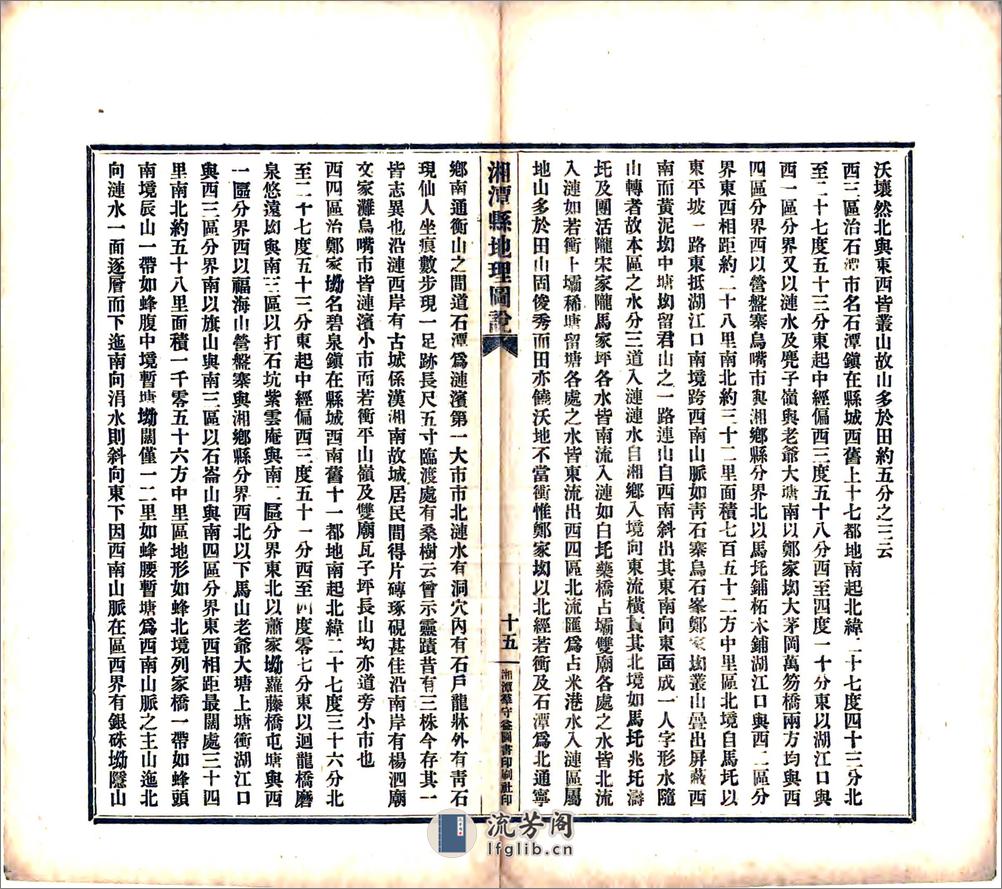 沃壤然北與東西皆叢山故山多於田約五分之三云
西三區治石潭市名石潭鎮在縣城西舊上十七都地南起北緯二十七度四十三分北
至二十七度五十三分東起中經偏西三度五十八分西至四度一十分東以湖江口與
西一區分界又以漣水及麂子嶺與老爺大塘南以鄭家坳大茅岡萬笏橋兩方均與西
四區分界西以營盤寨烏嘴市與湘鄉縣分界北以馬圫鋪柘木鋪湖江口與西二區分
界東西相距約二十八里南北約三十二里面積七百五十二方中里區北境自馬圫以
東平坡一路東抵湖江口南境跨西南山脈如青石寨烏石峯鄭家坳叢山疊出屏蔽西
南而黃泥坳中塘坳留君山之一路連山自西南斜出其東南向東面成一人字形水隨
山轉者故本區之水分三道入漣漣水自湘鄉入境向東流橫貫其北境如馬圫兆圫濤
圫及團活隴宋家隴馬家坪各水皆南流入漣如白圫藥橋占壩雙廟各處之水皆北流
入漣如若衝上壩稀塘留塘各處之水皆東流出西四區北流匯為占米港水入漣區屬
地山多於田山固俊秀而田亦饒沃地不當衝惟鄭家坳以北經若衝及石潭為北通寧
湘潭縣地理圖說
十五
湘潭羣守益圖書印刷社印
鄉南通衡山之間道石潭為漣濱第一大市市北漣水有洞穴內有石戶龍牀外有青石
現仙人坐痕數步現一足跡長尺五寸臨渡處有桑樹云曾示靈蹟昔有三株今存其一
皆志異也沿漣西岸有古城係漢湘南故城居民間得片磚琢硯甚佳沿南岸有楊泗廟
文家灘烏嘴市皆漣濱小市而若衝平山嶺及雙廟瓦子坪長山坳亦道旁小市也
西四區治鄭家坳名碧泉鎮在縣城西南舊十一都地南起北緯二十七度三十六分北
至二十七度五十三分東起中經偏西三度五十一分西至四度零七分東以迴龍橋磨
泉悠遠坳與南三區以打石坑紫雲庵與南二區分界東北以蕭家坳蘿藤橋屯塘與西
一區分界西以福海山營盤寨與湘鄉縣分界西北以下馬山老爺大塘上塘衝湖江口
與西三區分界南以旗山與南三區以石崙山與南四區分界東西相距最闊處三十四
里南北約五十八里面積一千零五十六方中里區地形如蜂北境列家橋一帶如蜂頭
南境辰山一帶如蜂腹中境暫塘坳闊僅一二里如蜂腰暫塘為西南山脈之主山迤北
向漣水一面逐層而下迤南向涓水則斜向東下因西南山脈在區西界有銀硃坳隱山
流芳阁
lfglib.cn